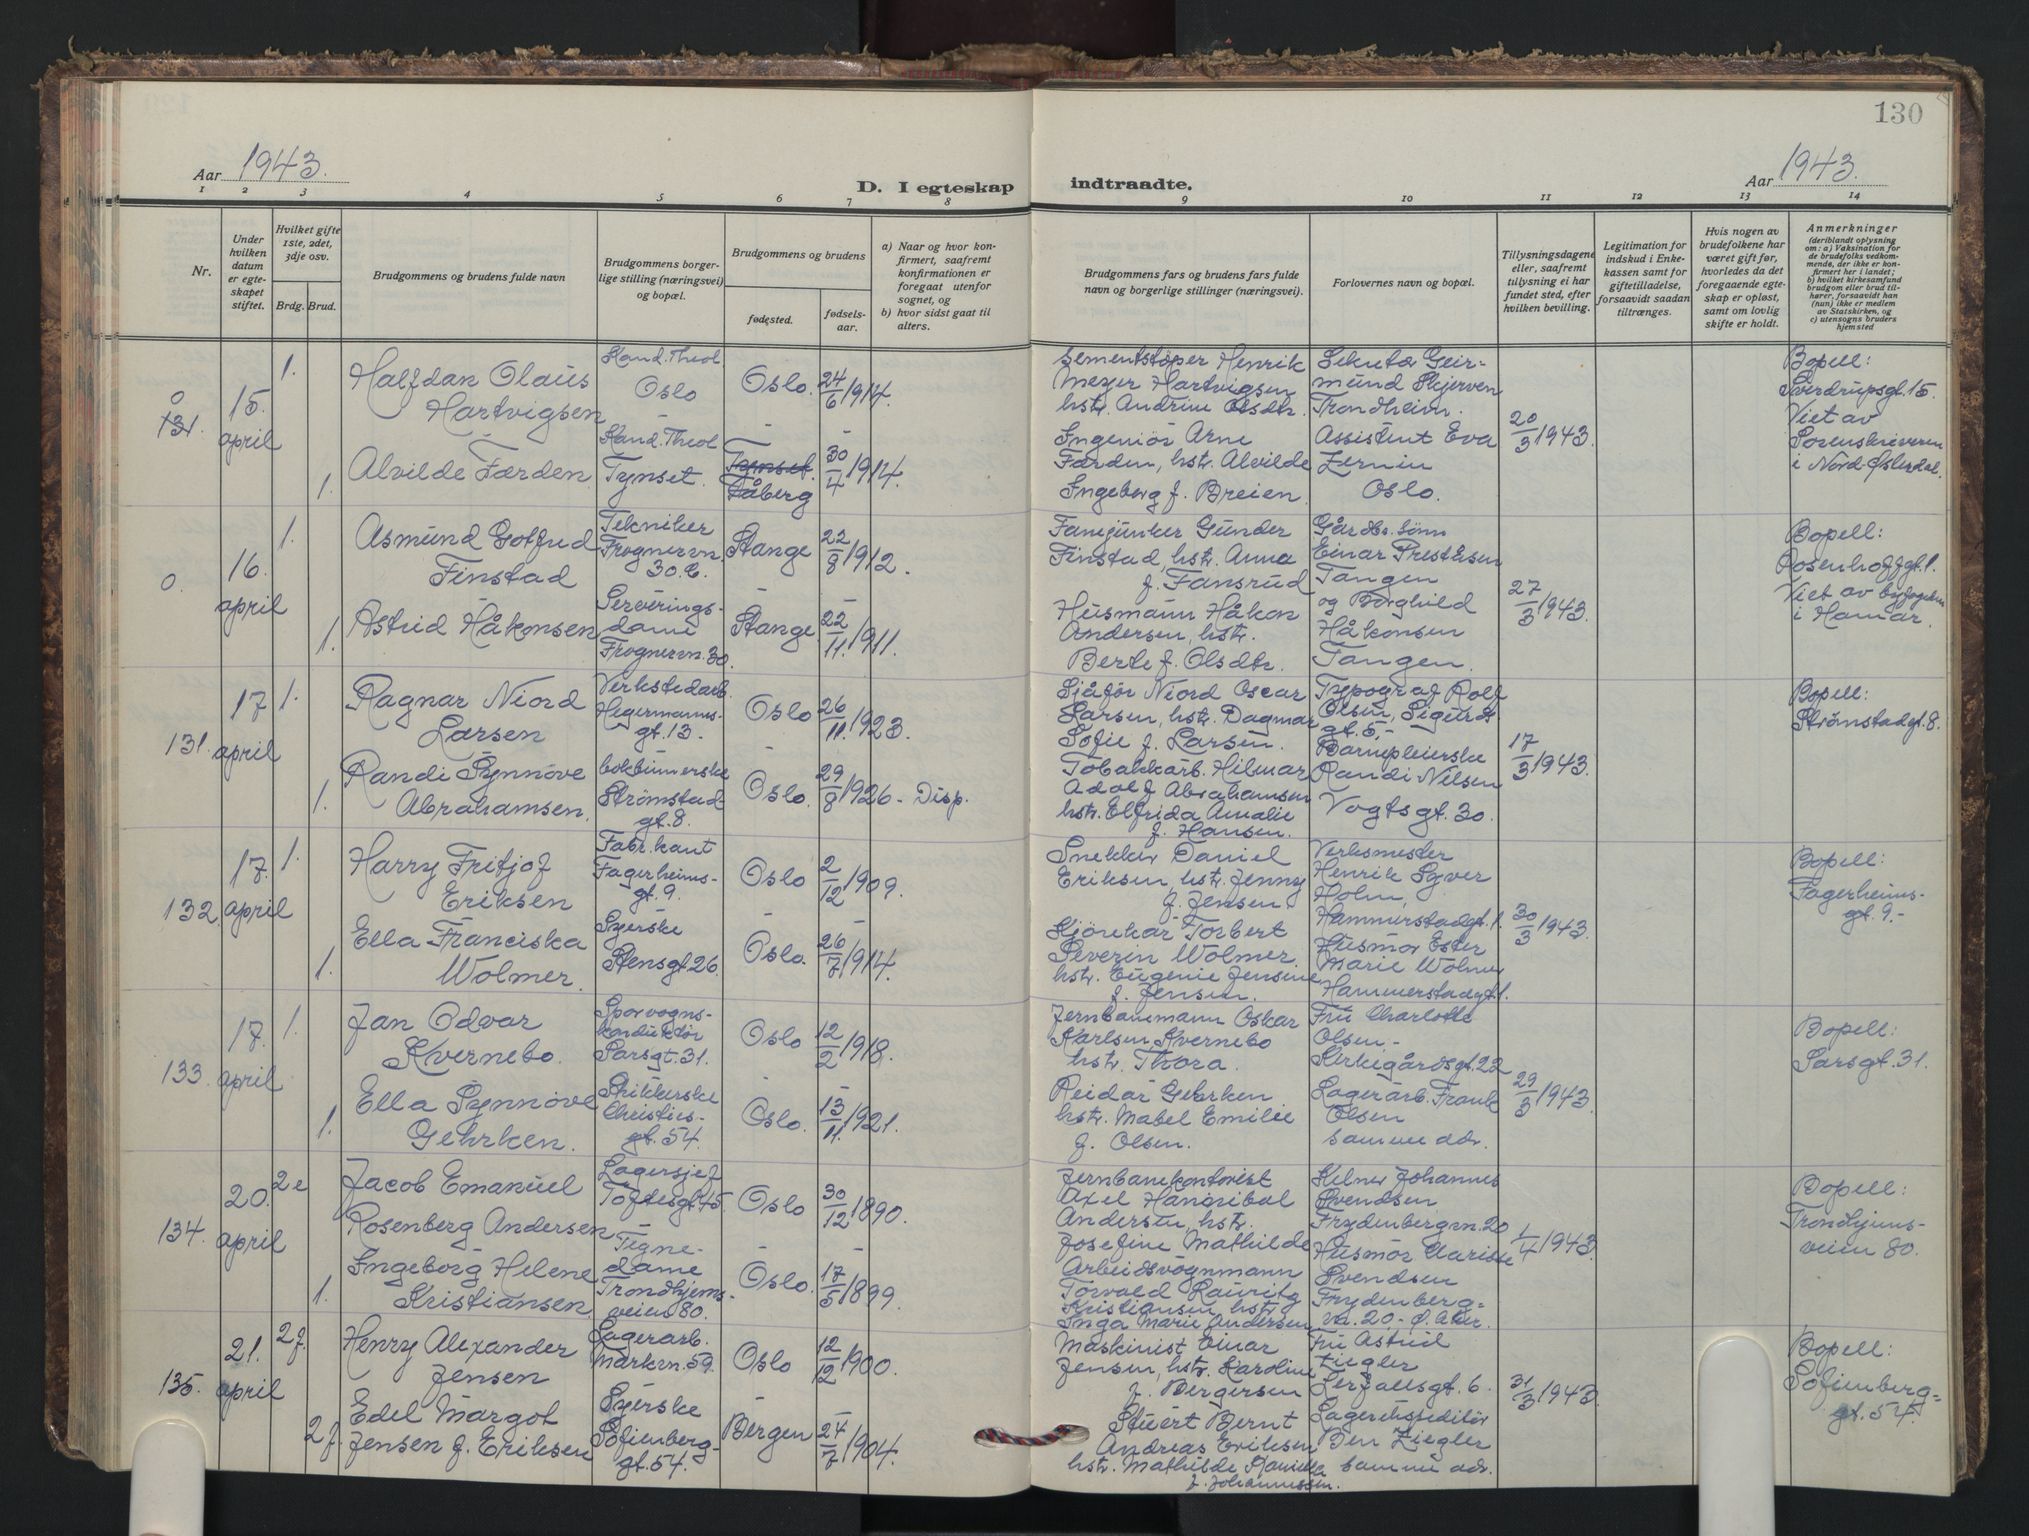 130
Aar 1943.
D. I egteskap
indtraadte.
Aar 1943.
1 2 3 4 5 6 7 8 9 10 11 12 13 14
Nr.
Under hvilken datum er egteskapet stiftet.
Hvilket gifte 1ste, 2det, 3dje osv.
Brdg. Brud.
Brudgommens og brudens fulde navn
Brudgommens borgerlige stilling (næringsvei) og bopæl.
Brudgommens og brudens
fødested.
fødselsaar.
a) Naar og hvor konfirmert, saafremt konfirmationen er foregaat utenfor sognet, og
b) hvor sidst gaat til alters.
Brudgommens fars og brudens fars fulde navn og borgerlige stillinger (næringsvei).
Forlovernes navn og bopæl.
Tillysningsdagene eller, saafremt tillysning ei har fundet sted, efter hvilken bevilling.
Legitimation for indskud i Enkekassen samt for giftetilladelse, forsaavidt saadan tiltrænges.
Hvis nogen av brudefolkene har været gift før, hvorledes da det foregaaende egteskap er opløst, samt om lovlig skifte er holdt.
Anmerkninger
(deriblandt oplysning om: a) Vaksination for de brudefolks vedkommende, der ikke er konfirmert her i landet; b) hvilket kirkesamfund brudgom eller brud tilhører, forsaavidt han (hun) ikke er medlem av Statskirken, og c) utensogns bruders hjemsted
0
131.
15. april
1.
Halfdan Olaus
Hartvigsen
Kand. Theol
Oslo
Oslo. 24/6 1914.
1.
Alvilde Færden.
Kand. Theol
Tynset.
Tynset.
Fåberg
30/4 1914.
Sementstøper Henrik
Meyer Hartvigsen
hstr. Andrine Olsdtr.
Ingeniør Arne
Færden, hstr. Alvilde
Ingeborg f. Breien.
Sekretær Geir-
mund Skjerven
Trondheim.
Assistent Eva
Zernin
Oslo.
20/3 1943.
Bopell:
Sverdrupsgt. 15.
Viet av
Sorenskriveren
i Nord-Østerdal.
0.
16. april
1.
Asmund Gotfred
Finstad
Tekniker
Frognervn.
30.C.
Stange 22/8 1912.
1.
Astrid Håkonsen
Serverings-
dame
Frognervn. 30.
Stange 22/11. 1911.
Fanejunker Gunder
Finstad, hstr. Anna
f. Fansrud
Husmann Håkon
Andersen, hstr.
Berte f. Olsdtr.
Gårdbr. sønn
Einar Prestersen
Tangen
og Borghild
Håkonsen
Tangen.
27/3 1943.
Bopell:
Rosenhoffgt. 1.
Viet av byfogden
i Hamar.
131.
17 april
1.
Ragnar Niord
Larsen
Verkstedarb.
Hegermanns-
gt. 13.
Oslo 26/11. 1923.
1.
Randi Synnøve
Abrahamsen.
bokbinnerske
Strømstad
gt. 8.
Oslo. 29/8 1926. - Disp.
Sjåfør Niord Oscar
Larsen, hstr. Dagmar
Sofie f. Larsen.
Tobakkarb. Hilmar
Adolf Abrahamsen
hstr. Elfrida Amalie
f. Hansen.
Typograf Rolf
Olsen, Sigurds
gt. 5.-
Barnepleierske
Randi Nilsen
Vogtsgt. 30.
17/3 1943.
Bopell:
Strømstadgt. 8.
132.
17. april
1.
Harry Fritjof
Eriksen
Fabr. kant
Fagerheims-
gt. 9.
Oslo 2/12 1909.
1.
Ella Franciska
Wolmer.
Syerske
Stensgt 26.
Oslo. 26/7 1914.
Snekker Daniel
Eriksen, hstr. Jenny
f. Jensen.
Kjørekar Torbert
Severin Wolmer.
hstr. Eugenie Jensine
f. Jensen.
Verksmester
Henrik Syver
Holm,
Hammerstadgt. 1.
Husmor Ester
Marie Wolmer
Hammerstadgt. 1.
30/3 1943.
Bopell:
Fagerheims-
gt. 9.-
133.
17. april
1.
Jan Odvar
Kvernebo.
Sporvogns-
konduktør
Sarsgt. 31.
Oslo 12/2 1918.
1.
Ella Synnøve
Gehrken.
Strikkerske
Christies-
gt. 54.
Oslo. 13/11. 1921.
Jernbanemann Oskar
Karlsen, Kvernebo
hstr. Thora.
Reidar Gehrken
hstr. Mabel Emilie
f. Olsen.
Fru Charlotte
Olsen.-
Kirkegårdsgt. 22
Lagerarb. Frank
Olsen
samme adr.
29/3 1943.
Bopell:
Sarsgt. 31.
134.
20. april
2e
Jacob Emanuel
Rosenberg Andersen
Lagersjef
Toftesgt. 45.
Oslo 30/12 1890.
1.
Ingeborg Helene
Kristiansen
Tegne-
dame
Trondhjems-
veien 80.
Oslo. 17/5 1899.
Jernbanekontorist
Axel Hannibal
Andersen, hstr.
Josefine Mathilde
Arbeidsvognmann
Torvald Lauritz
Kristiansen hstr.
Inga Marie Andersen
Kelner Johannes
Svendsen
Frydenbergvn. 20
Husmor Clarisse
Svendsen
Frydenberg-
vn. 20. - Ø. Aker.
1/4 1943.
Bopell:
Trondhjems-
veien 80.
135.
21. april
2f.
Henry Alexander
Jensen
Lagerarb.
Markvn. 59.
Oslo 12/12 1900.
2f.
Edel Margot
Jensen f. Eriksen
Syerske
Sofienberg-
gt. 54.
Bergen 24/7 1904.
Maskinist Einar
Jensen, hstr. Karoline
f. Bergersen
Stuert Bernt
Andreas Eriksen
hstr. Mathilde
f. Johannessen.
Fru Astrid
Ziegler
Lerfallsgt. 6.
Lagerekspeditør
Ben Ziegler
samme adr.
31/3 1943.
Bopell:
Sofienberg-
gt. 54.